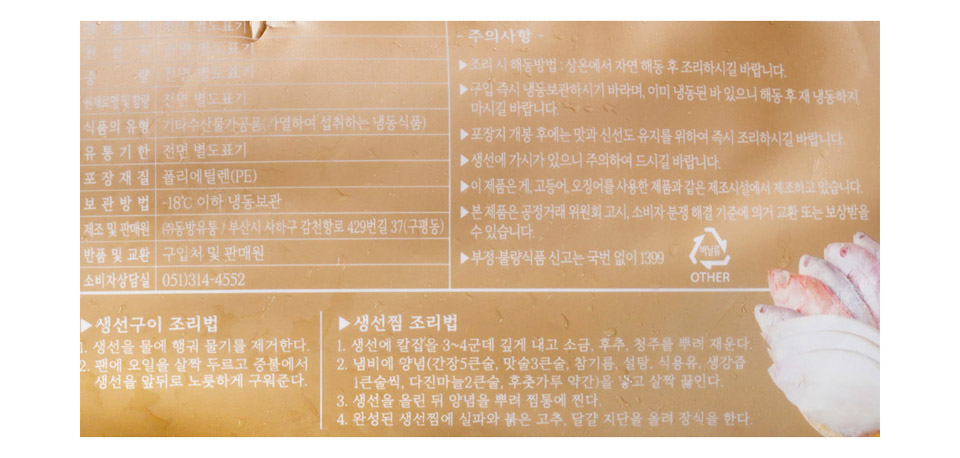 전면 별도표기
원 산 지 전면 별도표기
중 량 전면 별도표기
원재료명 및 함량 전면 별도표기
식품의 유형 기타수산물가공품(가열하여 섭취하는 냉동식품)
유통기한 전면 별도표기
포장재질 폴리에틸렌(PE)
보관방법 -18℃ 이하 냉동보관
제조 및 판매원 ㈜동방유통 / 부산시 사하구 감천항로 429번길 37(구평동)
반품 및 교환 구입처 및 판매원
소비자상담실 051)314-4552
- 주의사항 -
▶조리 시 해동방법 : 상온에서 자연 해동 후 조리하시길 바랍니다.
▶구입 즉시 냉동보관하시기 바라며, 이미 냉동된 바 있으니 해동 후 재 냉동하지
마시길 바랍니다.
▶포장지 개봉 후에는 맛과 신선도 유지를 위하여 즉시 조리하시길 바랍니다.
▶생선에 가시가 있으니 주의하여 드시길 바랍니다.
▶이 제품은 게, 고등어, 오징어를 사용한 제품과 같은 제조시설에서 제조하고 있습니다.
▶본 제품은 공정거래 위원회 고시, 소비자 분쟁 해결 기준에 의거 교환 또는 보상받을
수 있습니다.
▶부정·불량식품 신고는 국번 없이 1399
비닐류
OTHER
▶생선구이 조리법
1. 생선을 물에 헹궈 물기를 제거한다.
2. 팬에 오일을 살짝 두르고 중불에서
생선을 앞뒤로 노릇하게 구워준다.
▶생선찜 조리법
1. 생선에 칼집을 3~4군데 깊게 내고 소금, 후추, 청주를 뿌려 재운다.
2. 냄비에 양념(간장5큰술, 맛술3큰술, 참기름, 설탕, 식용유, 생강즙
1큰술씩, 다진마늘2큰술, 후춧가루 약간)을 넣고 살짝 끓인다.
3. 생선을 올린 뒤 양념을 뿌려 찜통에 찐다.
4. 완성된 생선찜에 실파와 붉은 고추, 달걀 지단을 올려 장식을 한다.